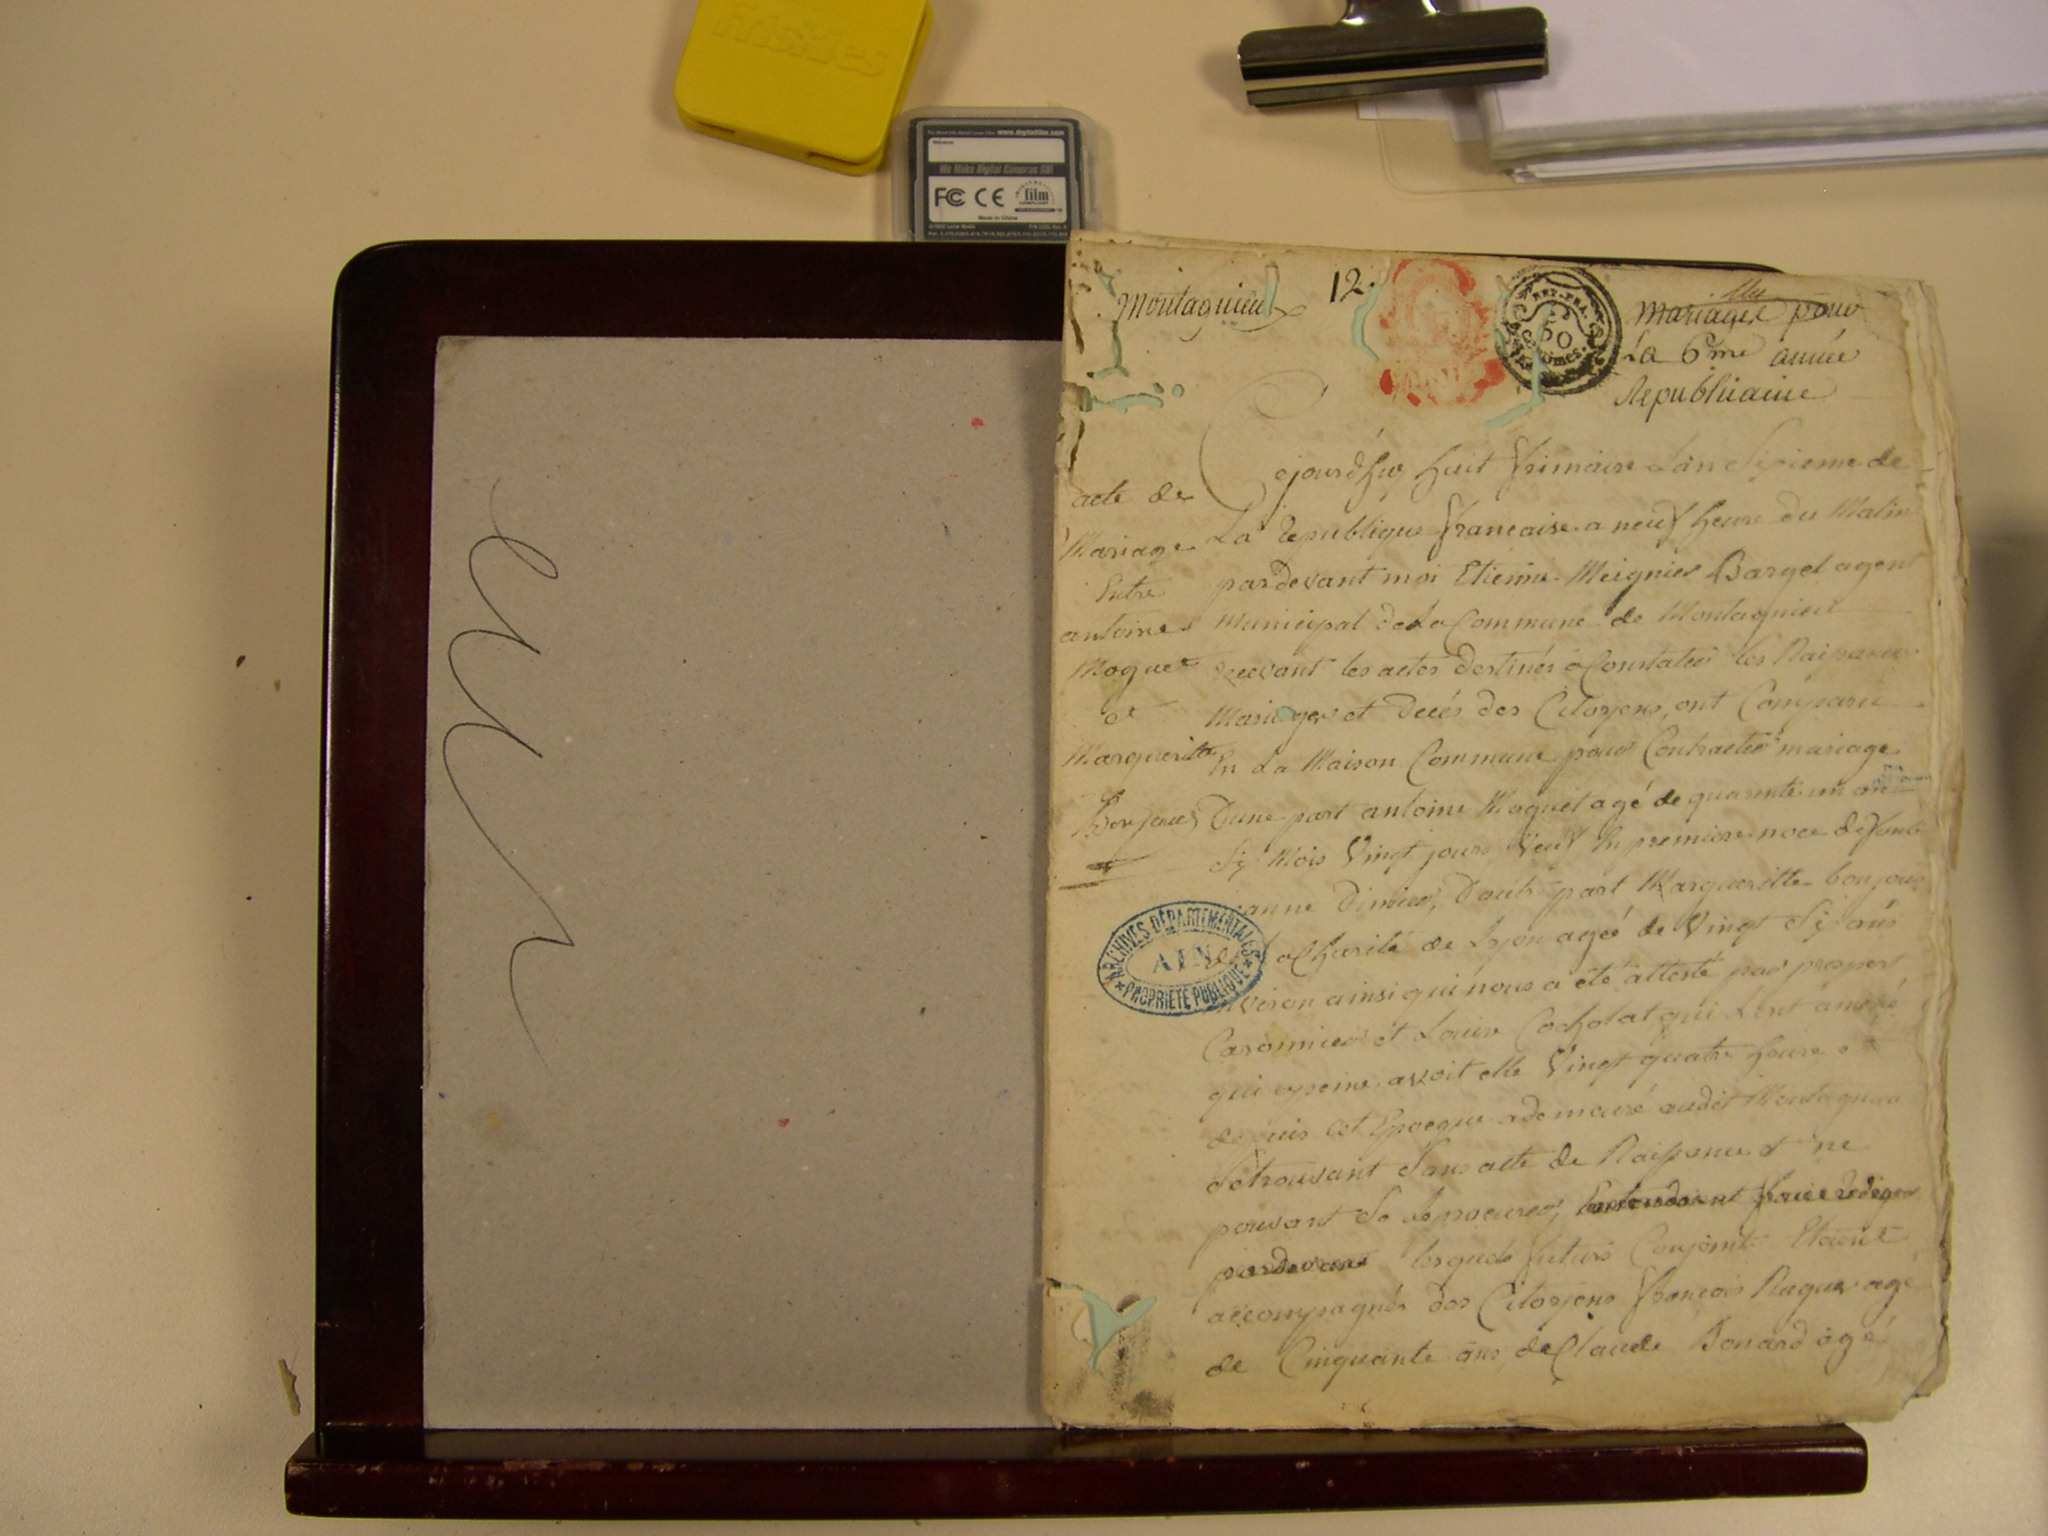 Frisktes
www.digitalfilm.com
We Make Digital Cameras Sd!
FC CE film
Made in China
Montagnieu
12.
REP. FRA.
50
Centimes.
Mariages pour
La 6me année
Republicaine
acte de
Mariage
Entre
antoine
Moquet
et
Marguerite
Bonjour
Cejourdhuy huit frimaire Lan Sixieme de
La republique francaise a neuf heure du Matin
pardevant moi Etienne Meignier Bargel agent
Municipal de La Commune de Montagnieu
recevant les actes destinés a Constater les Naissances
Mariages et decés des Citoyens, ont Comparu
En La Maison Commune pour Contracter mariage
Dune part antoine Moquet agé de quarente un an
Six Mois Vingt jours Veuf En premiere noce defunte
janne Dimier, Dautre part Margueritte bonjour
de La Charité de Lyon agée de Vingt Six ans
Environ ainsi qui nous a été attesté par prospert
Caronnier et Louise Cocholat qui Lont amené
qui apeine avoit elle Vingt quatre heure et
depuis cet Epoque ademeuré audit Montagnieu
Setrouvant Sans acte de Naissance et ne
pouvant Se Leprocurer,
pardevant lesquels futurs Conjoint Etaint
accompagnés des Citoyens francois Ruguex agé
de Cinquante ans, de Claude Bonard agé
ARCHIVES DÉPARTEMENTALES
AIN
PROPRIÉTÉ PUBLIQUE